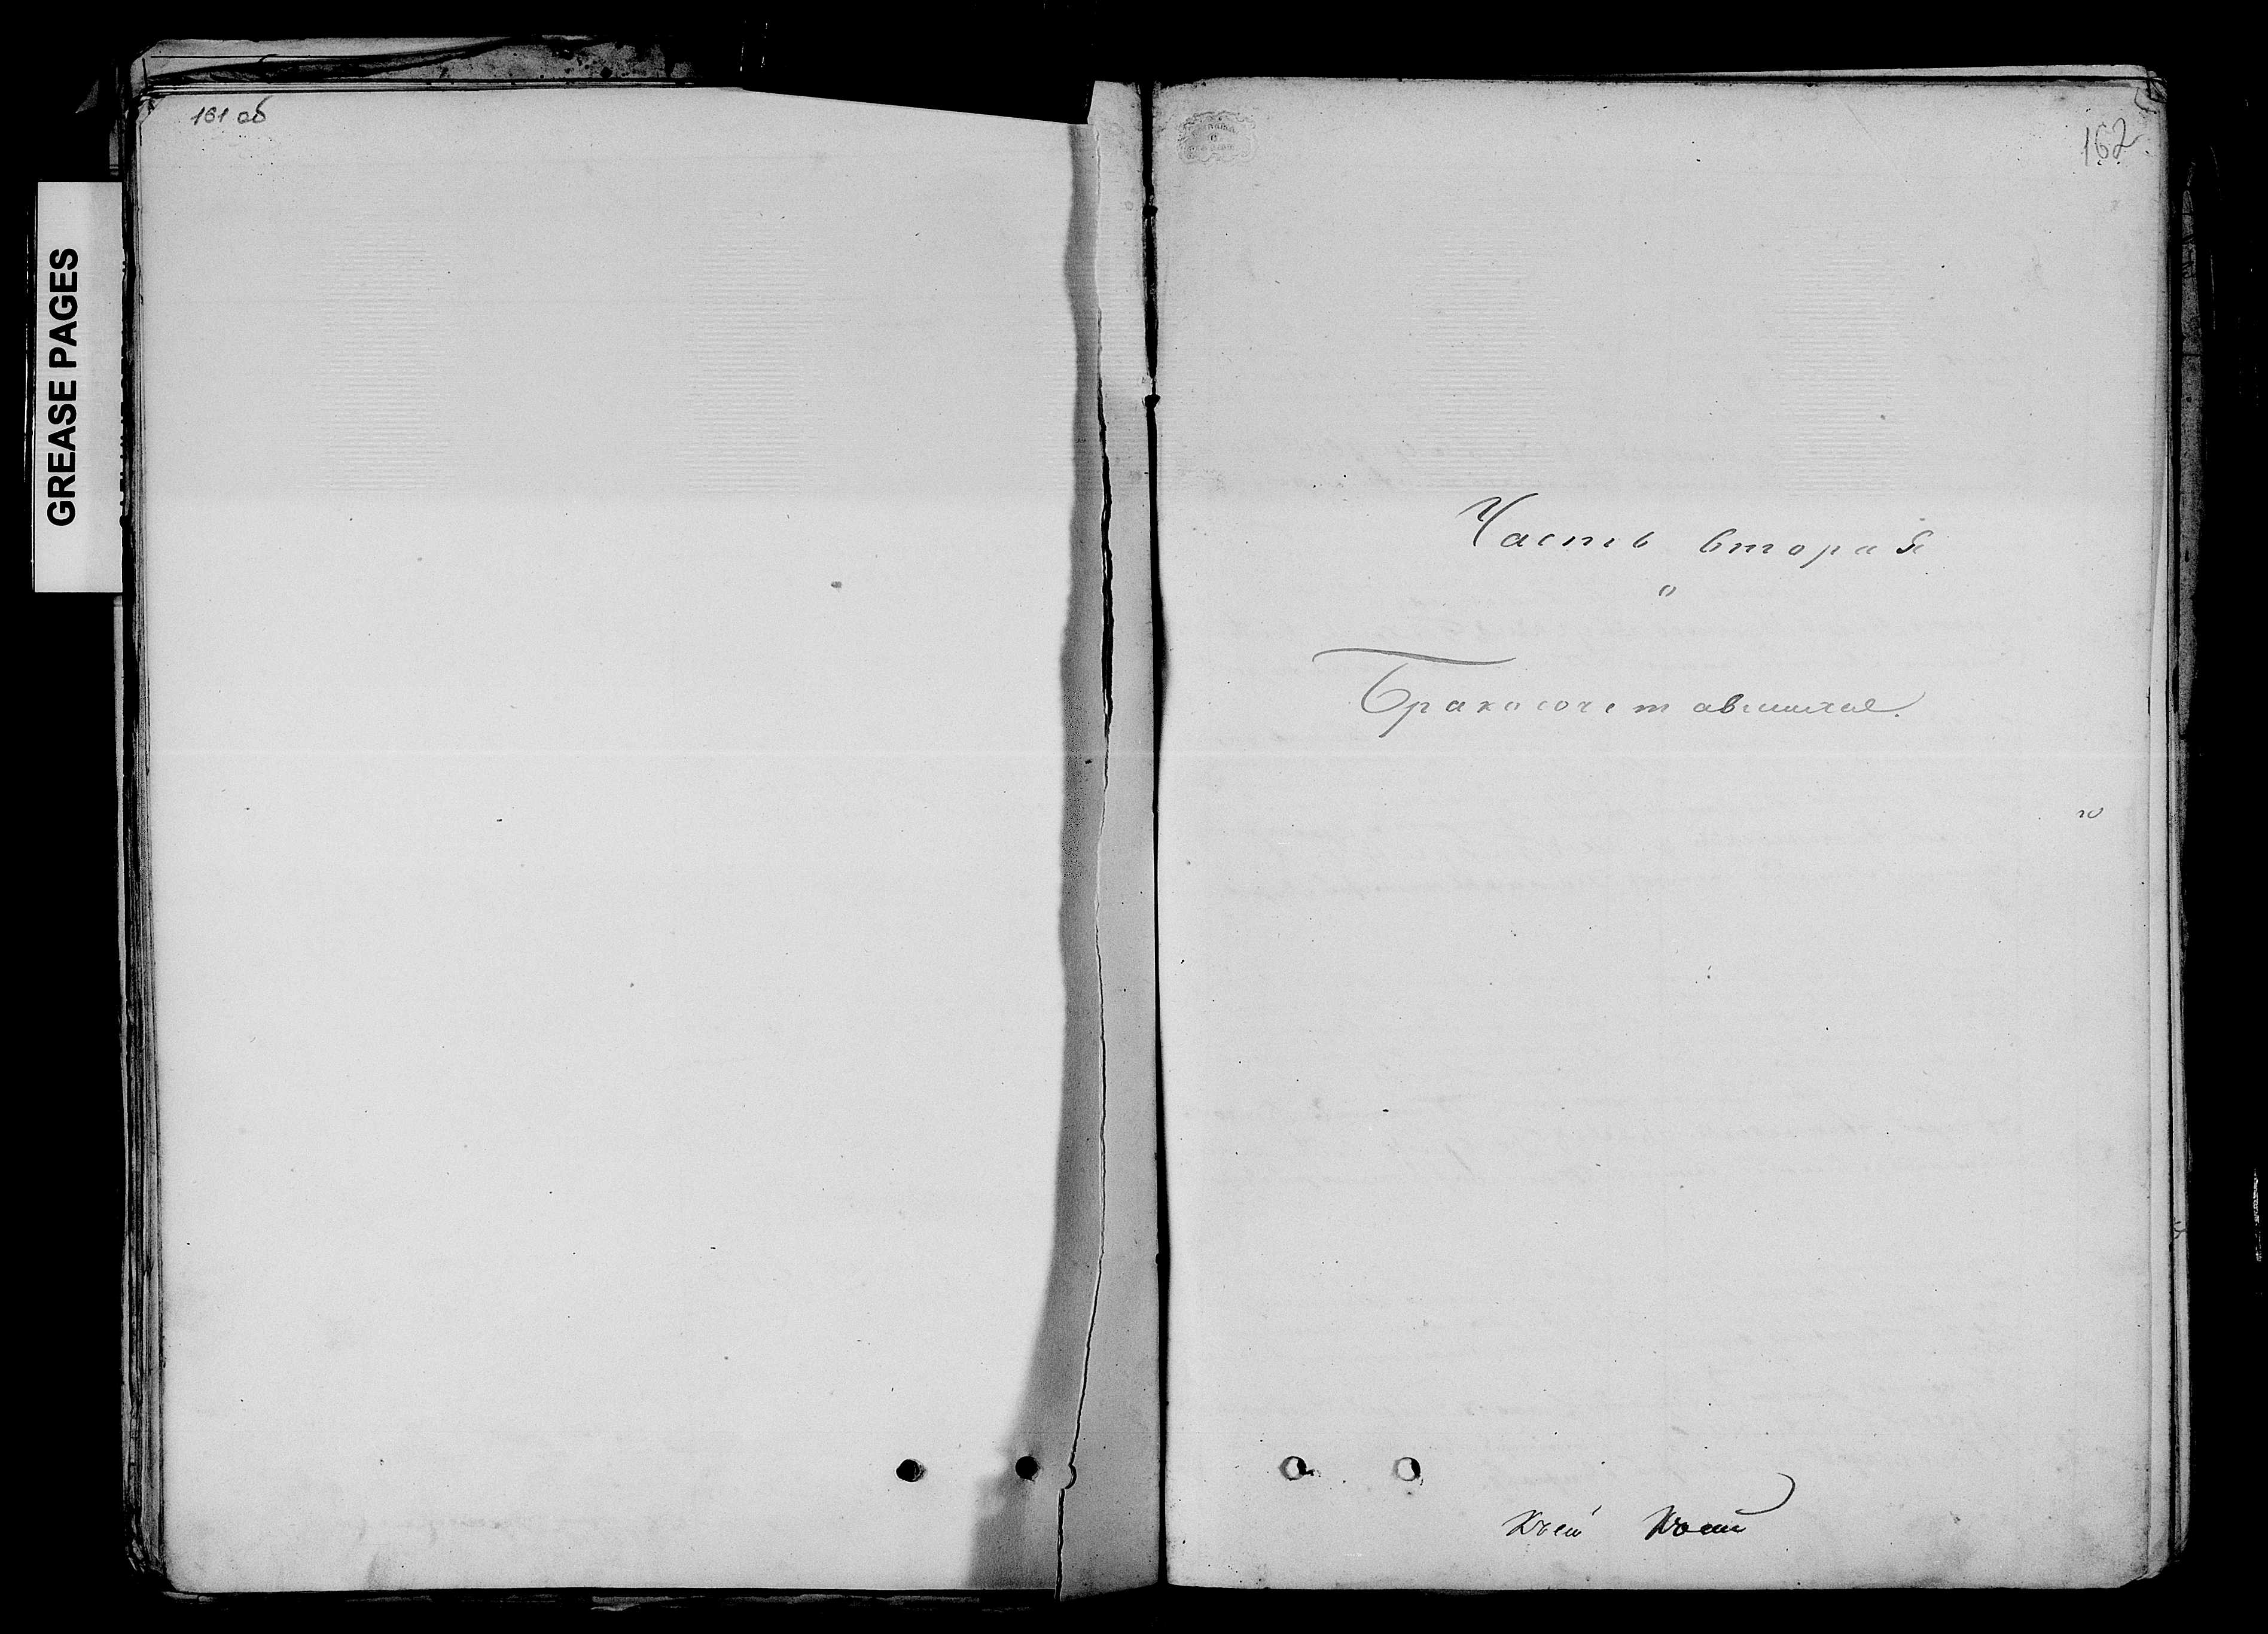 GREASE PAGES
161 об
162
Часть вторая
о
Бракосочетавшихся.